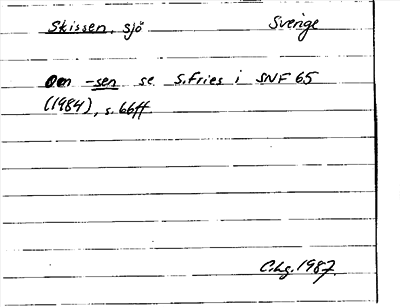 Skissen, sjö Sverige
Om -sen se S. Fries i SNF 65
(1984), s. 66ff.
C.hg. 1987.